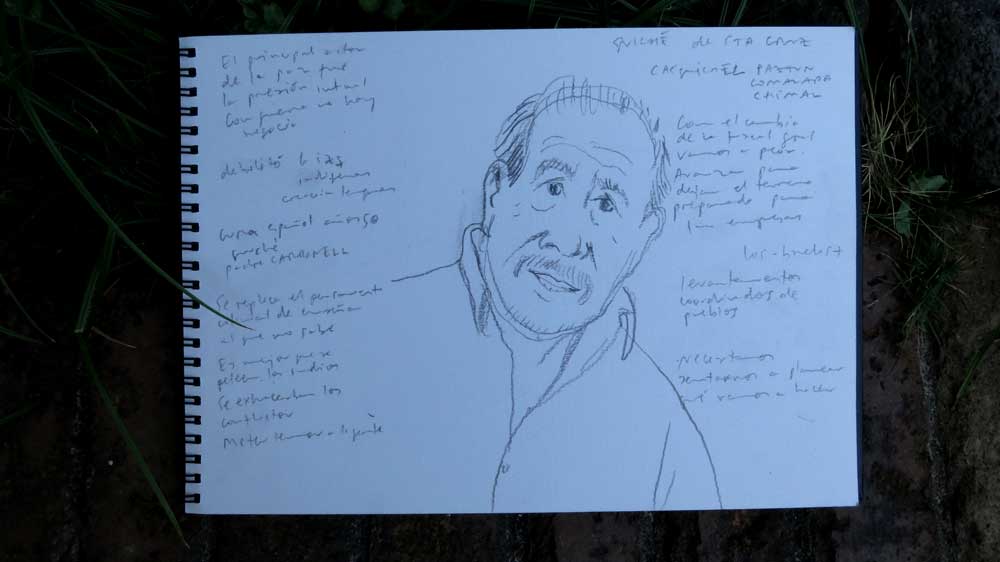 El principal actor
de la paz fue
la presión intnal
Con guerra no hay
negocio
debilitó
indígenas
lenguas
español
quiché
padre CARBONELL
Se replica el pensamiento
colonial de enseñar
al que no sabe
Es mejor que se
peleen los indios
Se exhacerban los
conflictos
Meter temor a la gente
QUICHÉ de STA CRUZ
CAQUICHEL PATZUN
COMALAPA
CHIMAL
Con el cambio
de la fiscal gral
vamos a peor.
Avanza para
dejar el terreno
preparado para
las empresas
levantamientos
coordinados de
pueblos
Necesitamos
sentarnos a planear
qué vamos a hacer